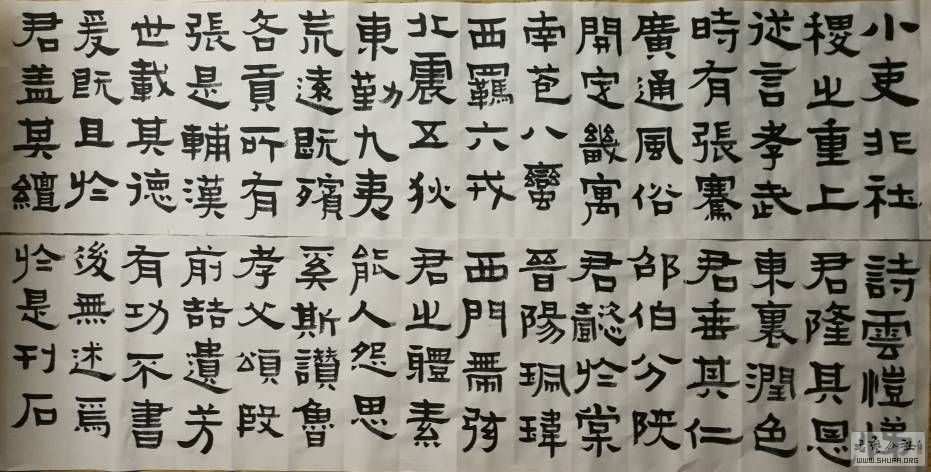 小吏非社
稷之重上
従言孝武
時有張騫
廣通風俗
開定畿寓
南苞八蠻
西羈六戎
北震五狄
東勤九夷
荒遠既殯
各貢所有
張是輔漢
世載其德
爰既且於
君盖其繵
詩雲愷悌
君隆其恩
東裏潤色
君垂其仁
邵伯分陝
君懿於棠
晉陽珮瑋
西門帶弦
君之體素
能人怨思
奚斯讃魯
孝父頌殷
前喆遺芳
有功不書
後無述焉
於是刊石
WWW.SHUFA.ORG